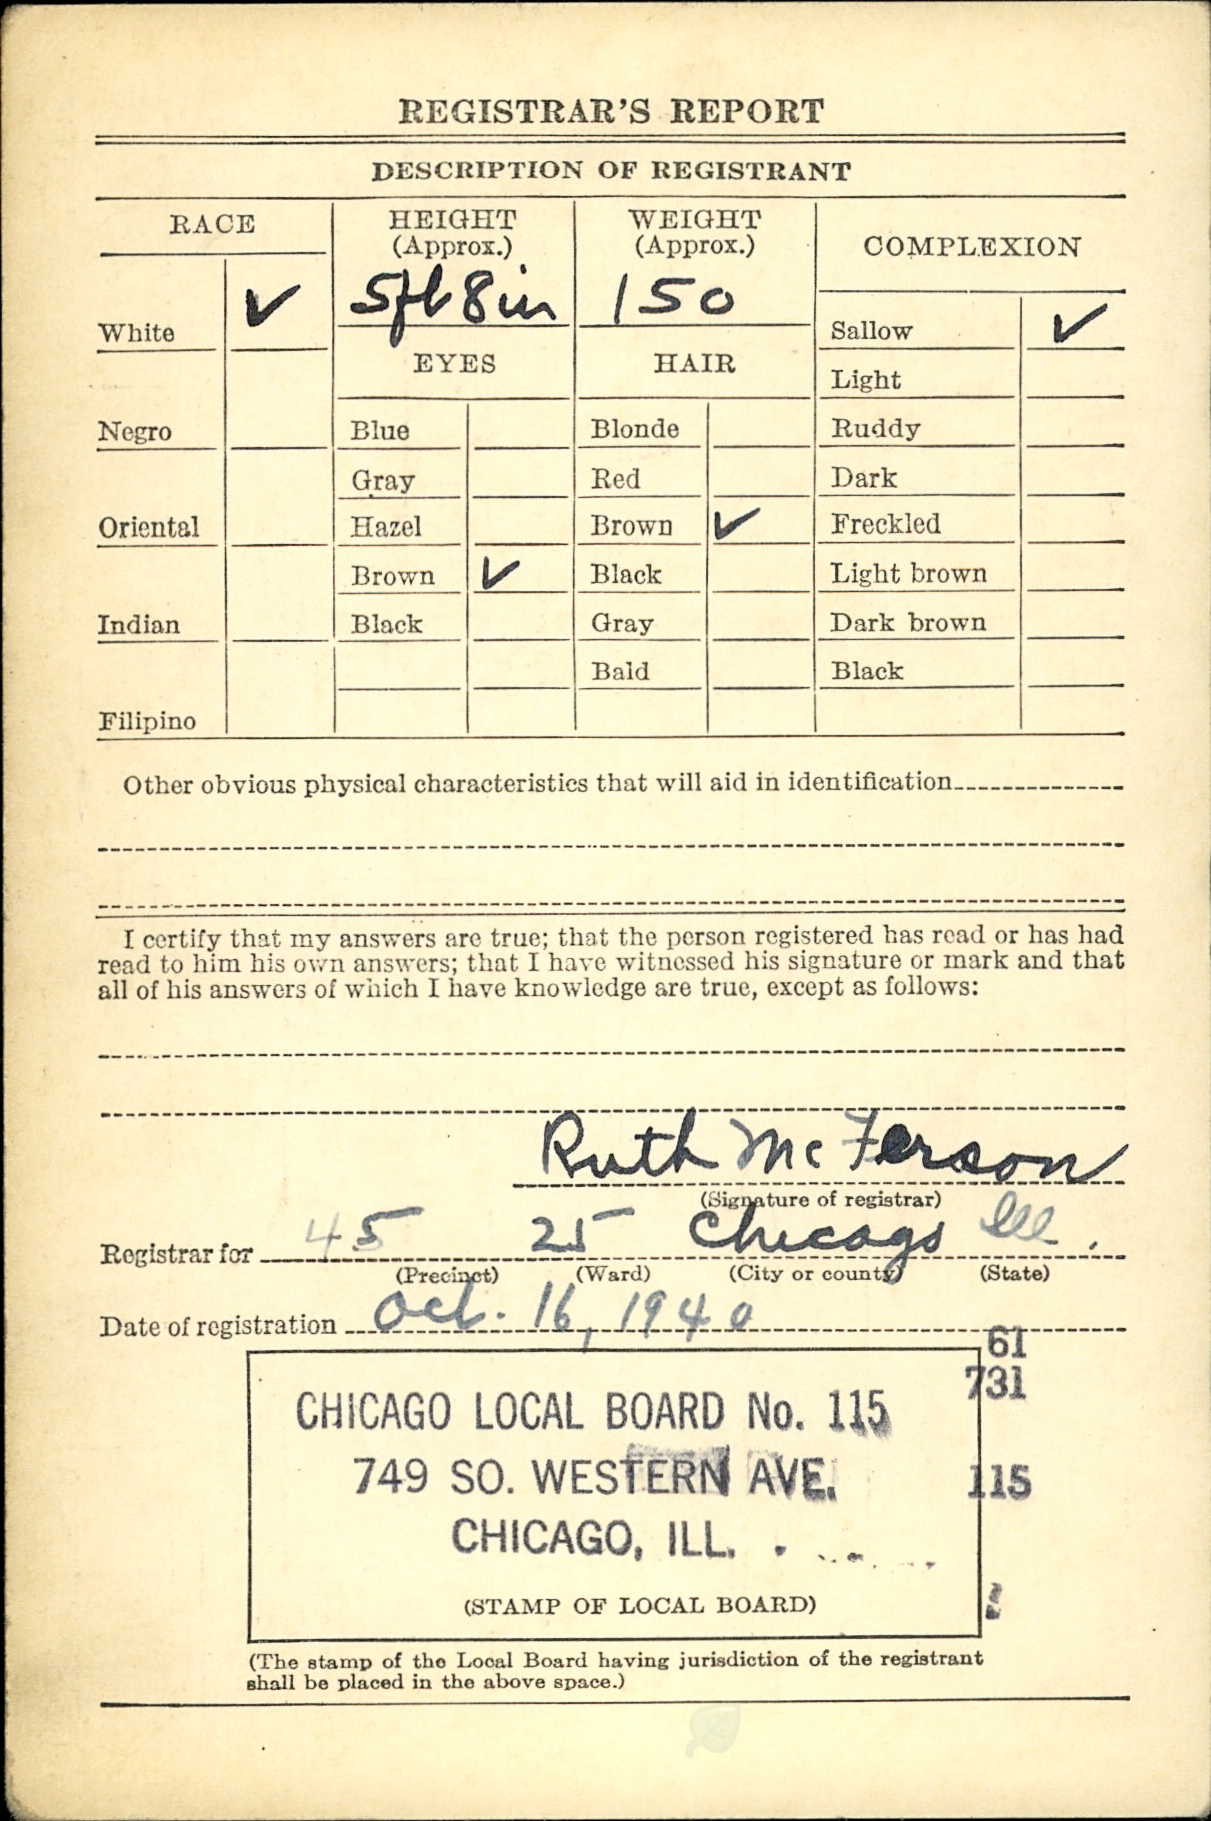 REGISTRAR'S REPORT
DESCRIPTION OF REGISTRANT
RACE
HEIGHT
(Approx.)
WEIGHT
(Approx.)
COMPLEXION
White ✓
5 ft 8 in
150
Sallow ✓
EYES
HAIR
Light
Negro
Blue
Blonde
Ruddy
Gray
Red
Dark
Oriental
Hazel
Brown ✓
Freckled
Brown ✓
Black
Light brown
Indian
Black
Gray
Dark brown
Bald
Black
Filipino
Other obvious physical characteristics that will aid in identification
I certify that my answers are true; that the person registered has read or has had
read to him his own answers; that I have witnessed his signature or mark and that
all of his answers of which I have knowledge are true, except as follows:
Ruth McFerson
(Signature of registrar)
Registrar for 45 25 Chicago Ill.
(Precinct) (Ward) (City or county) (State)
Date of registration Oct. 16, 1940
61
731
CHICAGO LOCAL BOARD No. 115
749 SO. WESTERN AVE. 115
CHICAGO, ILL.
(STAMP OF LOCAL BOARD)
(The stamp of the Local Board having jurisdiction of the registrant
shall be placed in the above space.)